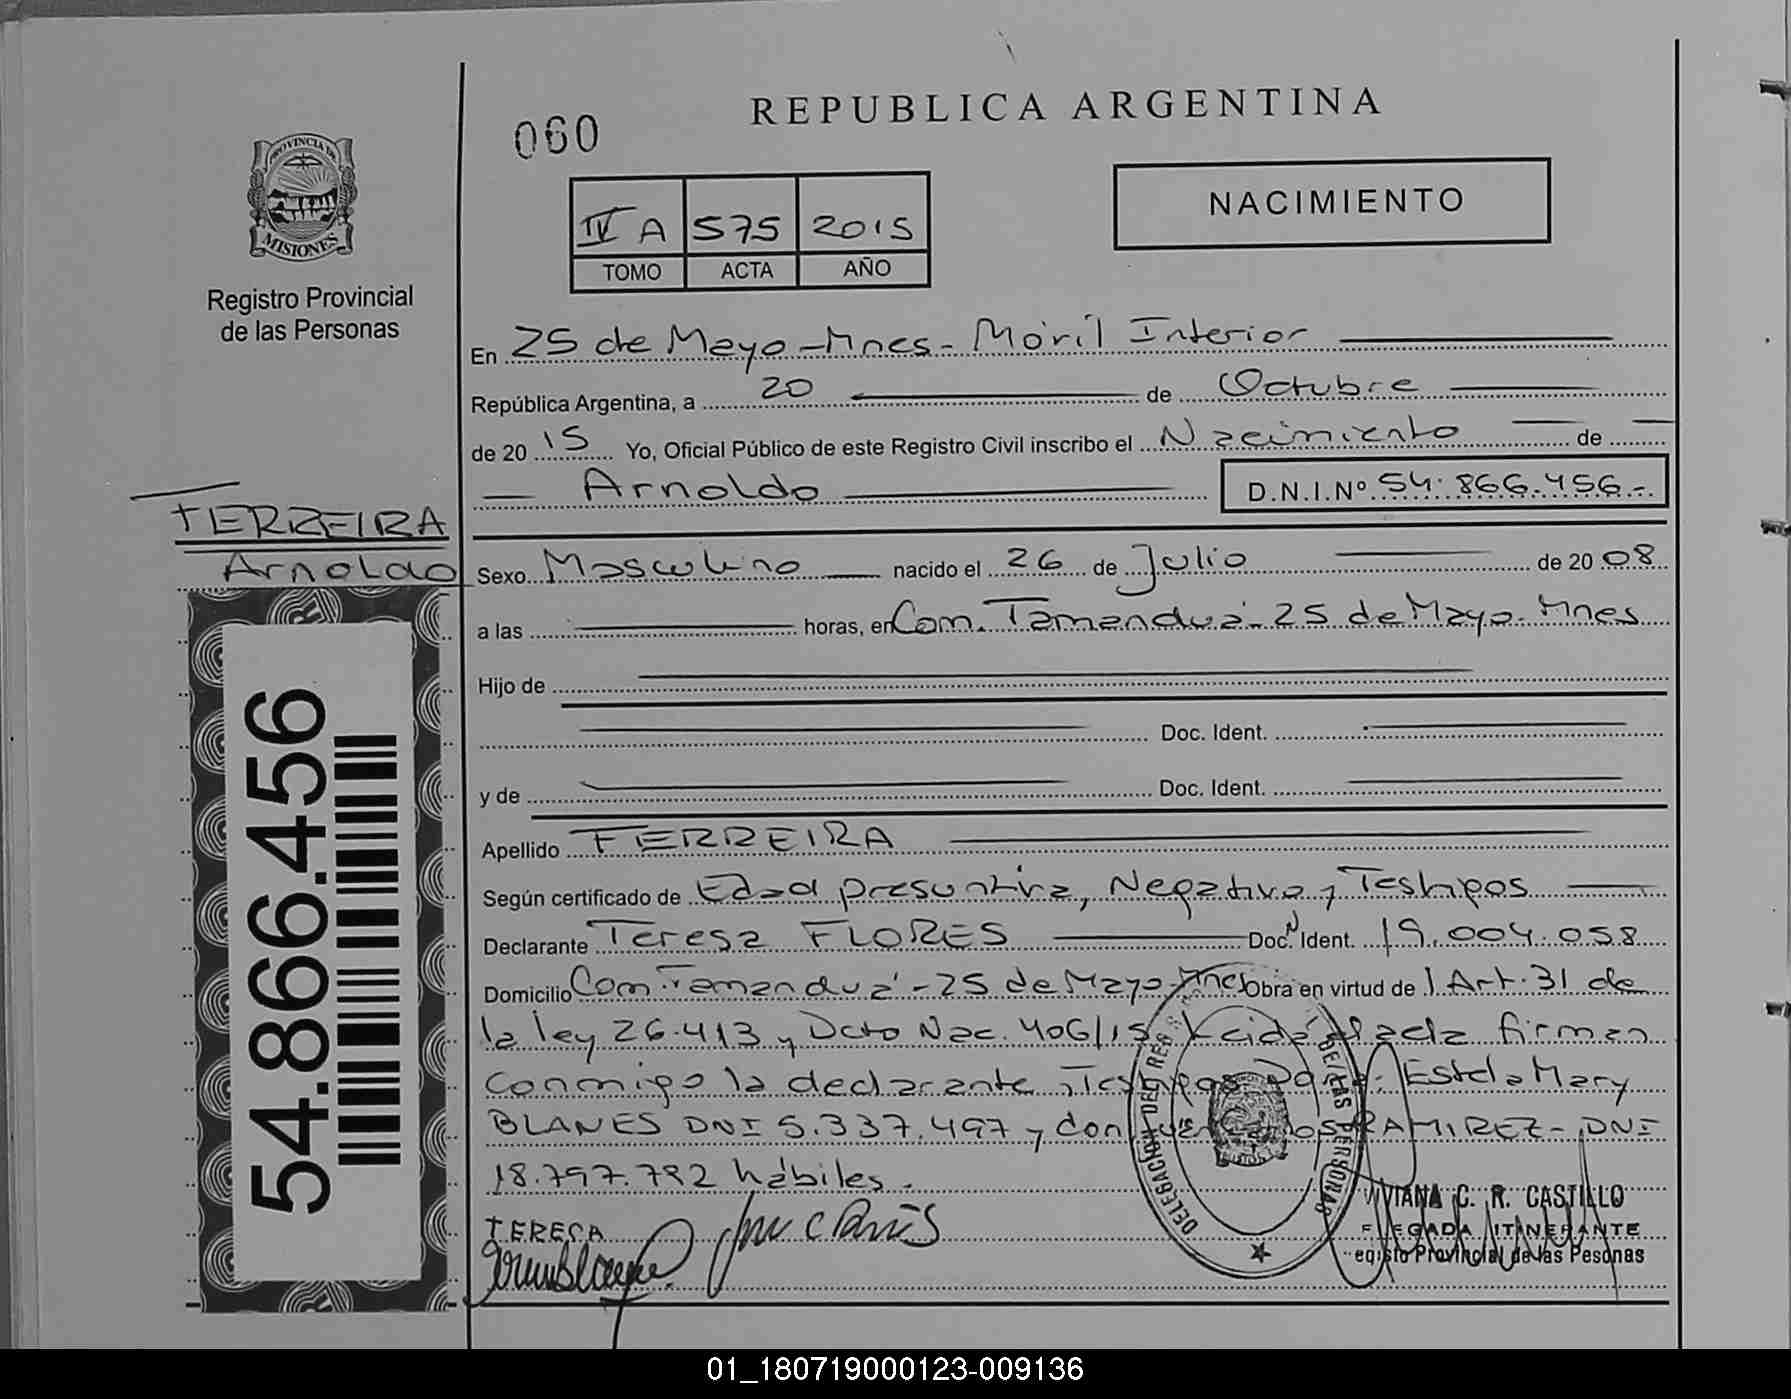 REPUBLICA ARGENTINA
060
NACIMIENTO
PROVINCIA DE
MISIONES
Registro Provincial
de las Personas
IV A 575 2015
TOMO ACTA AÑO
En 25 de Mayo - Mnes - Móvil Interior
República Argentina, a 20 de Octubre
de 2015 Yo, Oficial Público de este Registro Civil inscribo el Nacimiento de
Arnoldo D.N.I.Nº 54.866.456.-
FERREIRA
Arnoldo
54.866.456
Sexo Masculino nacido el 26 de Julio de 2008
a las horas, en Com. Tamanduá - 25 de Mayo - Mnes
Hijo de
Doc. Ident.
y de Doc. Ident.
Apellido FERREIRA
Según certificado de Edad presuntiva, Negativa y Testigos
Declarante Teresa FLORES Doc. Ident. 19.004.058
Domicilio Com. Tamanduá - 25 de Mayo - Mnes Obra en virtud de l Art. 31 de
la ley 26.413 y Dcto Nac. 406/15 Leída el acta firman
conmigo la declarante, Testigos Estela Mary
BLANES DNI 5.337.497 y don RAMIREZ - DNI
18.797.792 hábiles.
TERESA
DELEGACION DEL REG DE LAS PERSONAS
VIVIANA C. R. CASTILLO
ITINERANTE
Provincial de las Pesonas
01_180719000123-009136